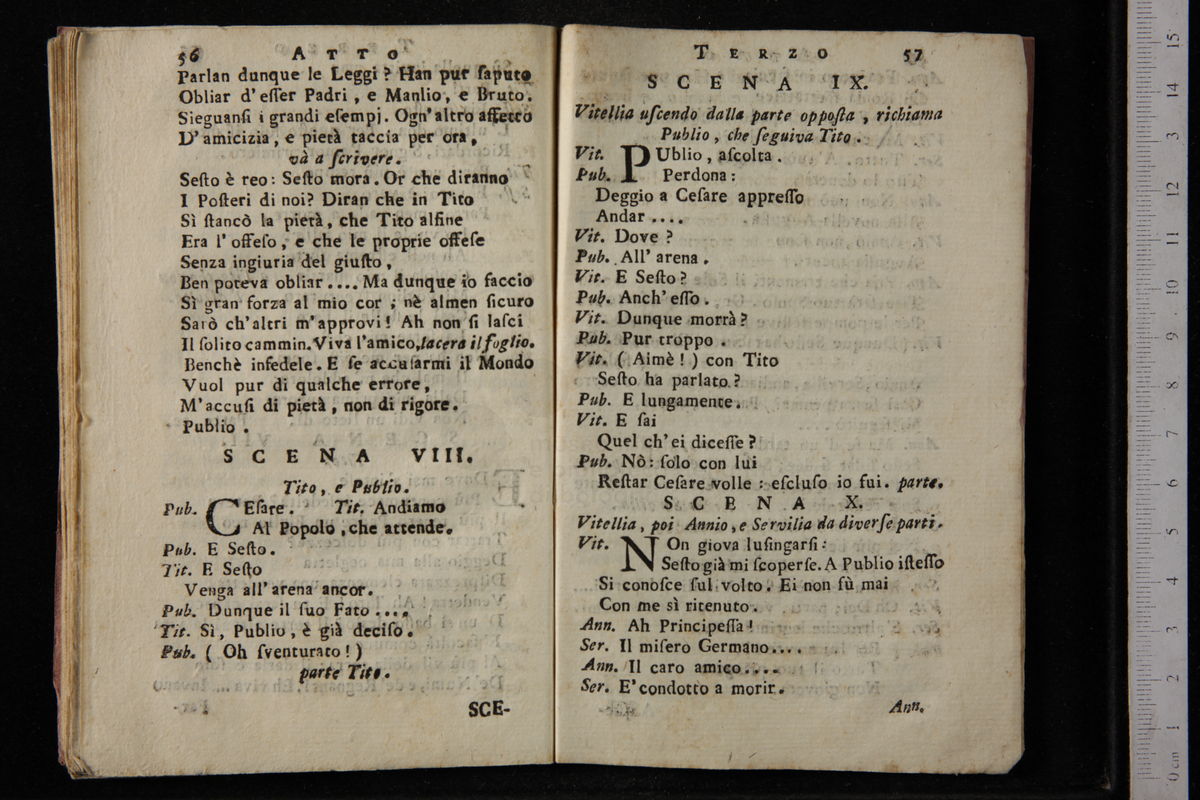 56 ATTO
Parlan dunque le Leggi? Han pur ſaputo
Obliar d'eſſer Padri, e Manlio, e Bruto.
Sieguanſi i grandi eſempj. Ogn'altro affetto
D'amicizia, e pietà taccia per ora,
và a ſcrivere.
Seſto è reo: Seſto mora. Or che diranno
I Poſteri di noi? Diran che in Tito
Sì ſtancò la pietà, che Tito alfine
Era l'offeſo, e che le proprie offeſe
Senza ingiuria del giuſto,
Ben poteva obliar.... Ma dunque io faccio
Sì gran forza al mio cor; nè almen ſicuro
Sarò ch'altri m'approvi! Ah non ſi laſci
Il ſolito cammin. Viva l'amico, lacera il foglio.
Benchè infedele. E ſe accuſarmi il Mondo
Vuol pur di qualche errore,
M'accuſi di pietà, non di rigore.
Publio.
SCENA VIII.
Tito, e Publio.
Pub. CEſare. Tit. Andiamo
Al Popolo, che attende.
Pub. E Seſto.
Tit. E Seſto
Venga all'arena ancor.
Pub. Dunque il ſuo Fato....
Tit. Sì, Publio, è già deciſo.
Pub. (Oh ſventurato!)
parte Tito.
SCE-
TERZO 57
SCENA IX.
Vitellia uſcendo dalla parte oppoſta, richiama
Publio, che ſeguiva Tito.
Vit. PUblio, aſcolta.
Pub. Perdona:
Deggio a Ceſare appreſſo
Andar....
Vit. Dove?
Pub. All'arena.
Vit. E Seſto?
Pub. Anch'eſſo.
Vit. Dunque morrà?
Pub. Pur troppo.
Vit. (Aimè!) con Tito
Seſto ha parlato?
Pub. E lungamente.
Vit. E ſai
Quel ch'ei diceſſe?
Pub. Nò: ſolo con lui
Reſtar Ceſare volle: eſcluſo io fui. parte.
SCENA X.
Vitellia, poi Annio, e Servilia da diverſe parti.
Vit. NOn giova luſingarſi:
Seſto già mi ſcoperſe. A Publio iſteſſo
Si conoſce ſul volto. Ei non fù mai
Con me sì ritenuto.
Ann. Ah Principeſſa!
Ser. Il miſero Germano....
Ann. Il caro amico....
Ser. E'condotto a morir.
Ann.